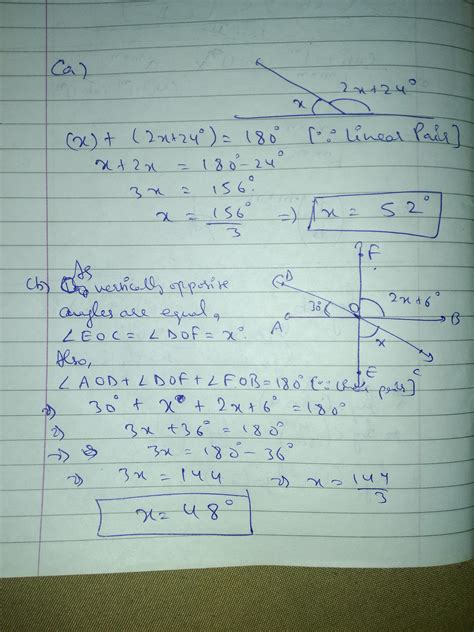 (a)
x 2x+24°
(x) + (2x+24°) = 180° [∵ Linear Pair]
x+2x = 180°-24°
3x = 156°
x = 156°/3 => x = 52°
F
(b) As vertically opposite
D
angles are equal,
30° O 2x+6°
A B
∠EOC = ∠DOF = x°
x
Also,
E C
∠AOD + ∠DOF + ∠FOB = 180° [∵ pair]
=> 30° + x° + 2x+6° = 180°
=> 3x + 36° = 180°
=> 3x = 180° - 36°
=> 3x = 144 => x = 144/3
x = 48°